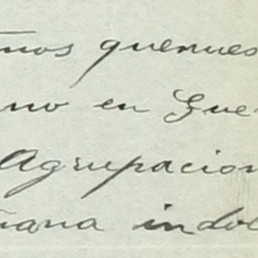 mos quenues
no en Gue
Agrupacion
ñana indol